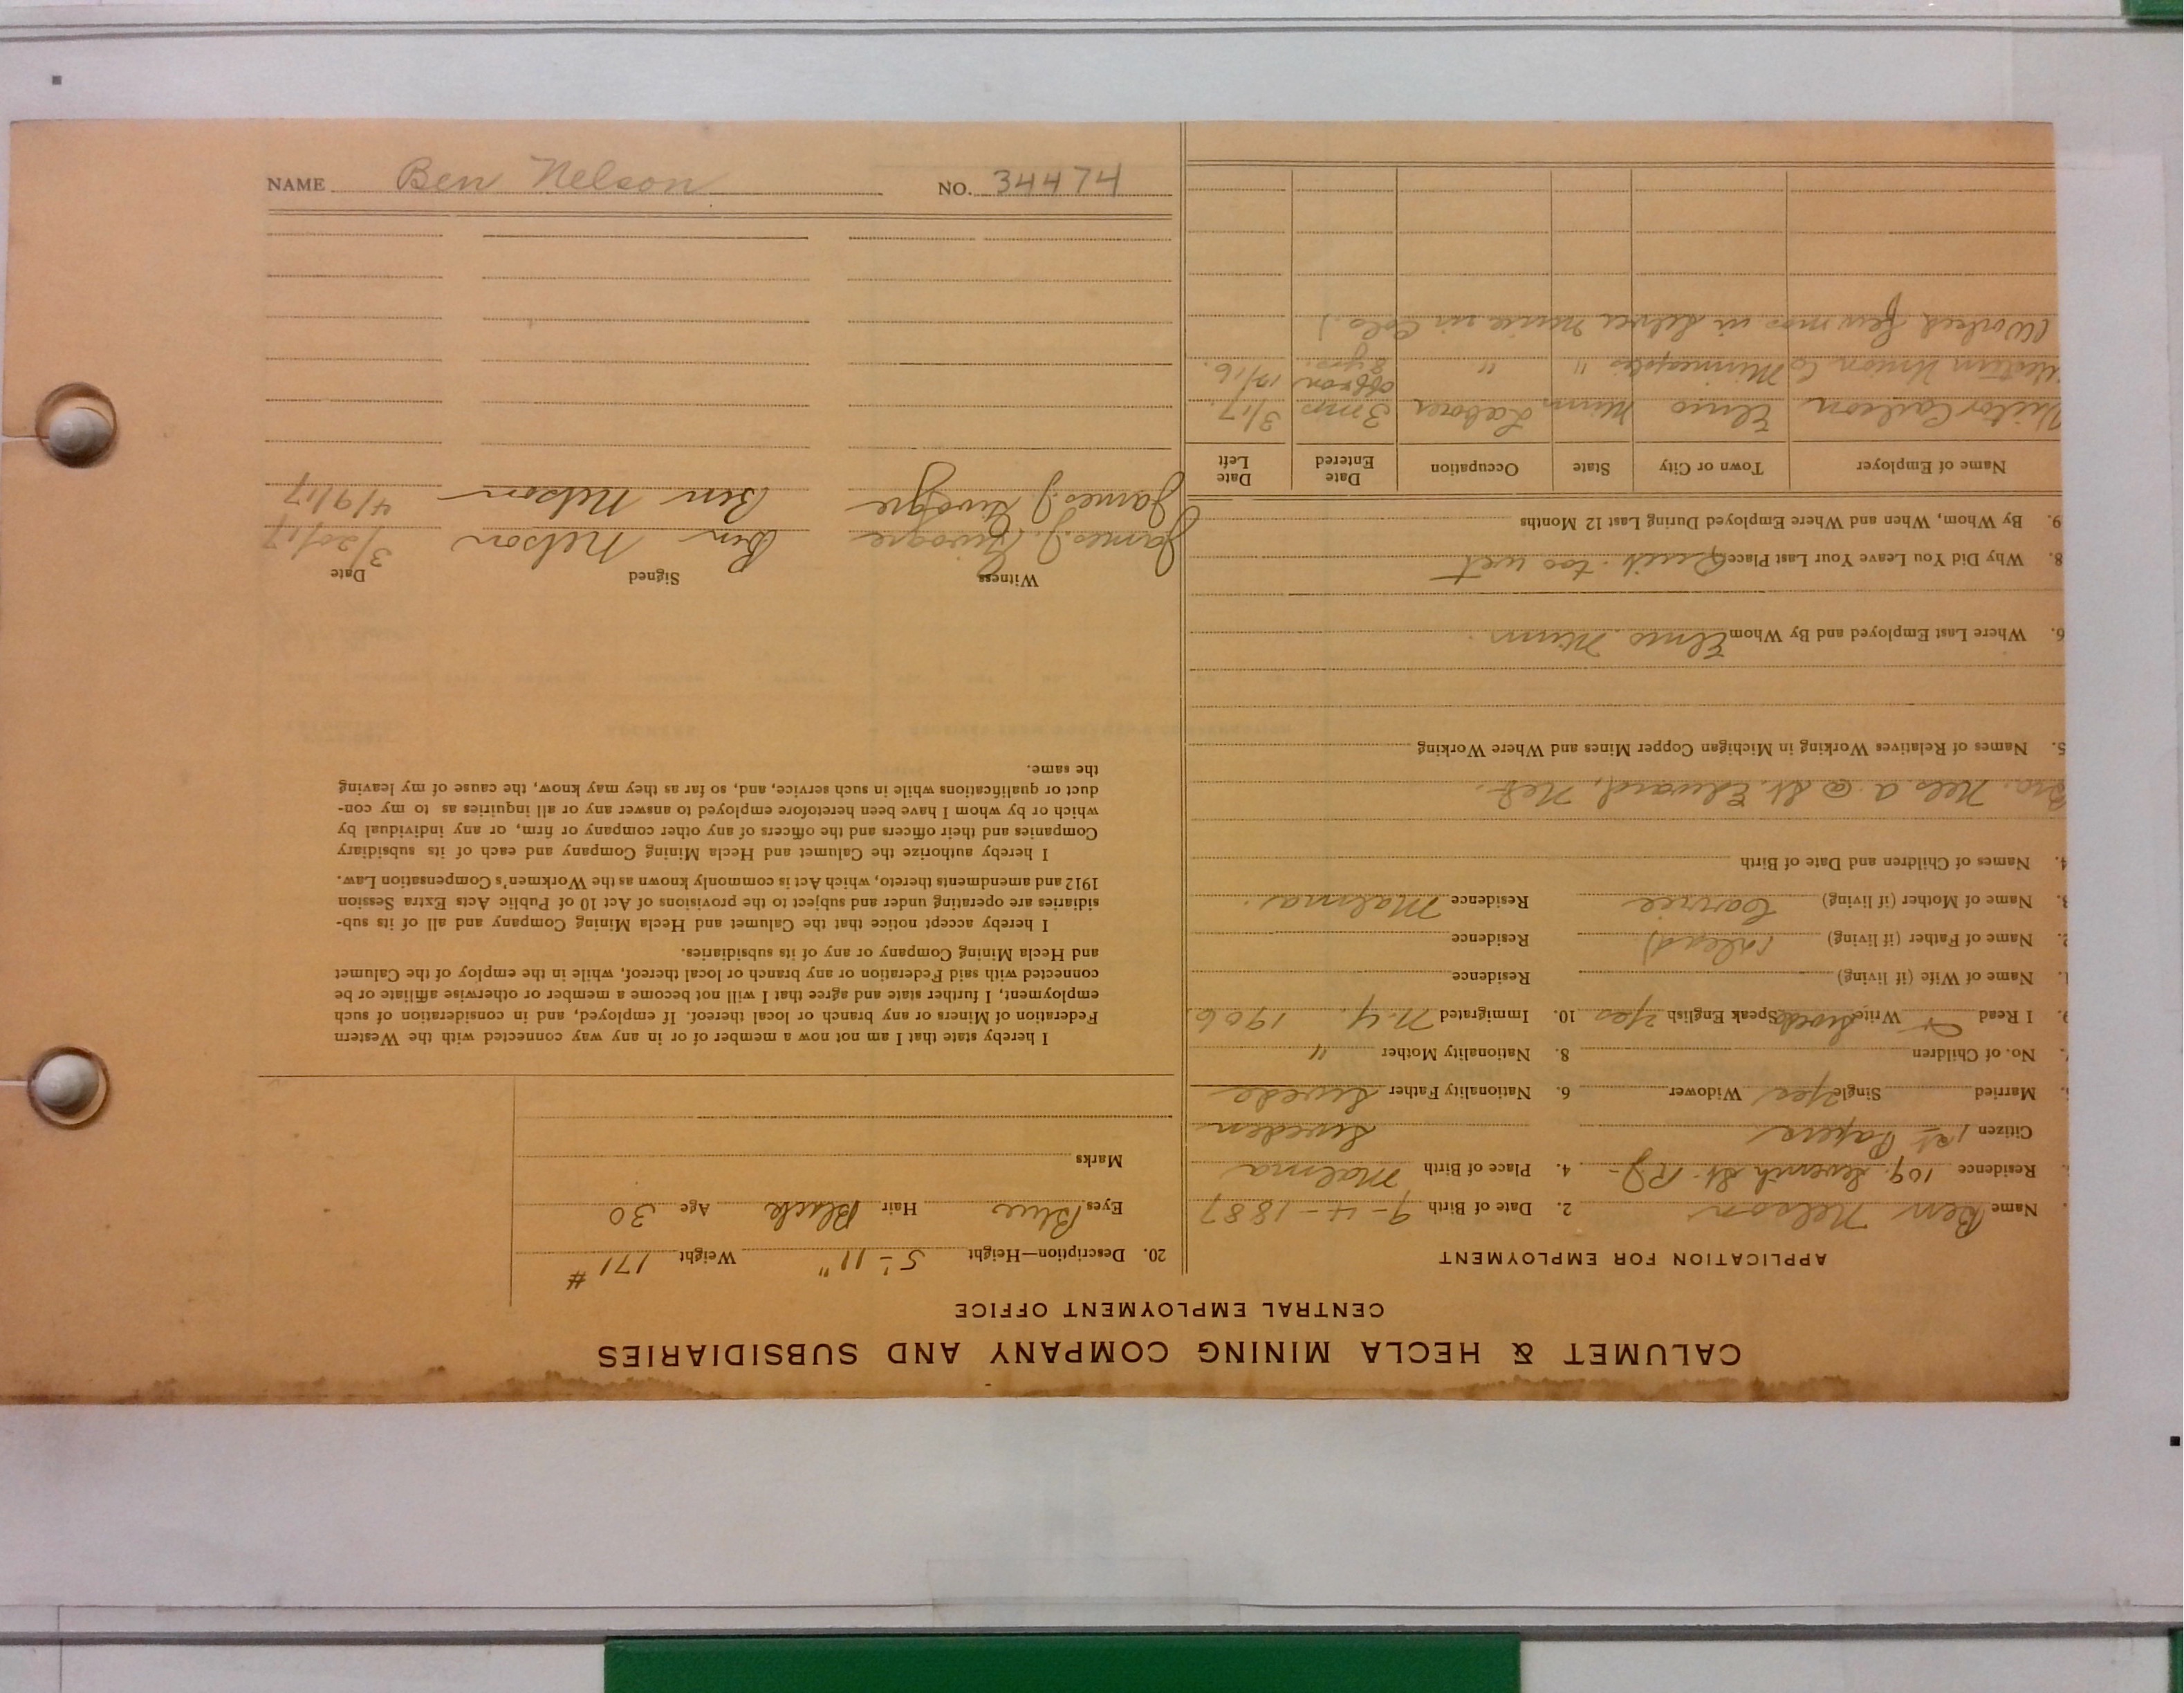 NAME Ben Nelson NO. 34474
CALUMET & HECLA MINING COMPANY AND SUBSIDIARIES
CENTRAL EMPLOYMENT OFFICE
APPLICATION FOR EMPLOYMENT
Name Ben Nelson 2. Date of Birth 9-4-1887
Residence 109 Seventh St. 4. Place of Birth Malma
Citizen 1st Papers Sweden
Married Single Yes Widower 6. Nationality Father Swede
No. of Children 8. Nationality Mother "
9. I Read Write Swede Speak English Yes 10. Immigrated N.Y. 1906
1. Name of Wife (if living) Residence
2. Name of Father (if living) (dead) Residence
3. Name of Mother (if living) Carrie Residence Malma.
4. Names of Children and Date of Birth
Bro. Nels A. @ St. Edward, Neb.
5. Names of Relatives Working in Michigan Copper Mines and Where Working
6. Where Last Employed and By Whom Elmo Minn.
8. Why Did You Leave Your Last Place Quit. too wet
9. By Whom, When and Where Employed During Last 12 Months
Name of Employer Town or City State Occupation Date Entered Date Left
Victor Carlson Elmo Minn Laborer 3 mos 3/17.
Western Union Co Minneapolis " " approx 8 yrs. 12/16.
(Worked few mos. in Silver mine in Colo.)
20. Description—Height 5'-11" Weight 171 #
Eyes Blue Hair Black Age 30
Marks
I hereby state that I am not now a member of or in any way connected with the Western
Federation of Miners or any branch or local thereof. If employed, and in consideration of such
employment, I further state and agree that I will not become a member or otherwise affiliate or be
connected with said Federation or any branch or local thereof, while in the employ of the Calumet
and Hecla Mining Company or any of its subsidiaries.
I hereby accept notice that the Calumet and Hecla Mining Company and all of its sub-
sidiaries are operating under and subject to the provisions of Act 10 of Public Acts Extra Session
1912 and amendments thereto, which Act is commonly known as the Workmen's Compensation Law.
I hereby authorize the Calumet and Hecla Mining Company and each of its subsidiary
Companies and their officers and the officers of any other company or firm, or any individual by
which or by whom I have been heretofore employed to answer any or all inquiries as to my con-
duct or qualifications while in such service, and, so far as they may know, the cause of my leaving
the same.
Witness Signed Date
James J. Ben Nelson 3/20/17
James J. Ben Nelson 4/9/17